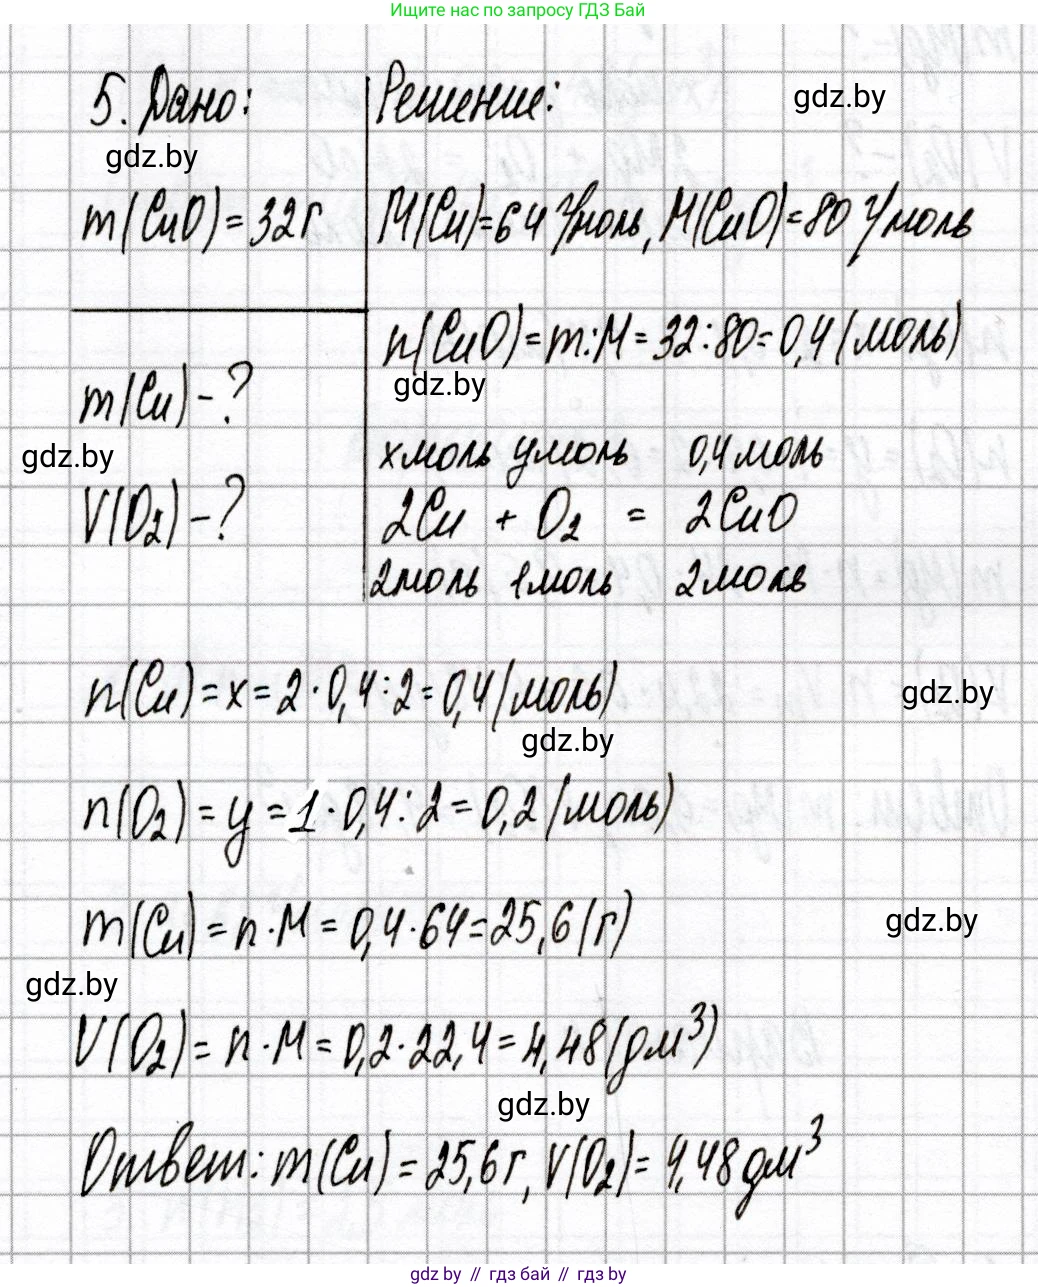 Ищите нас по запросу ГДЗ Бай
5. Дано: Решение:
gdz.by
gdz.by
m(CuO)=32г M(Cu)=64 г/моль, M(CuO)=80 г/моль
n(CuO)=m:M=32:80=0,4(моль)
gdz.by
m(Cu)-?
gdz.by
x моль y моль 0,4 моль
V(O₂)-? 2Cu + O₂ = 2CuO
2моль 1моль 2моль
n(Cu)=x=2·0,4:2=0,4(моль)
gdz.by
gdz.by
n(O₂)=y=1·0,4:2=0,2(моль)
m(Cu)=n·M=0,4·64=25,6(г)
gdz.by
gdz.by
V(O₂)=n·M=0,2·22,4=4,48(дм³)
gdz.by
Ответ: m(Cu)=25,6г, V(O₂)=4,48дм³
gdz.by // гдз бай // гдз.by